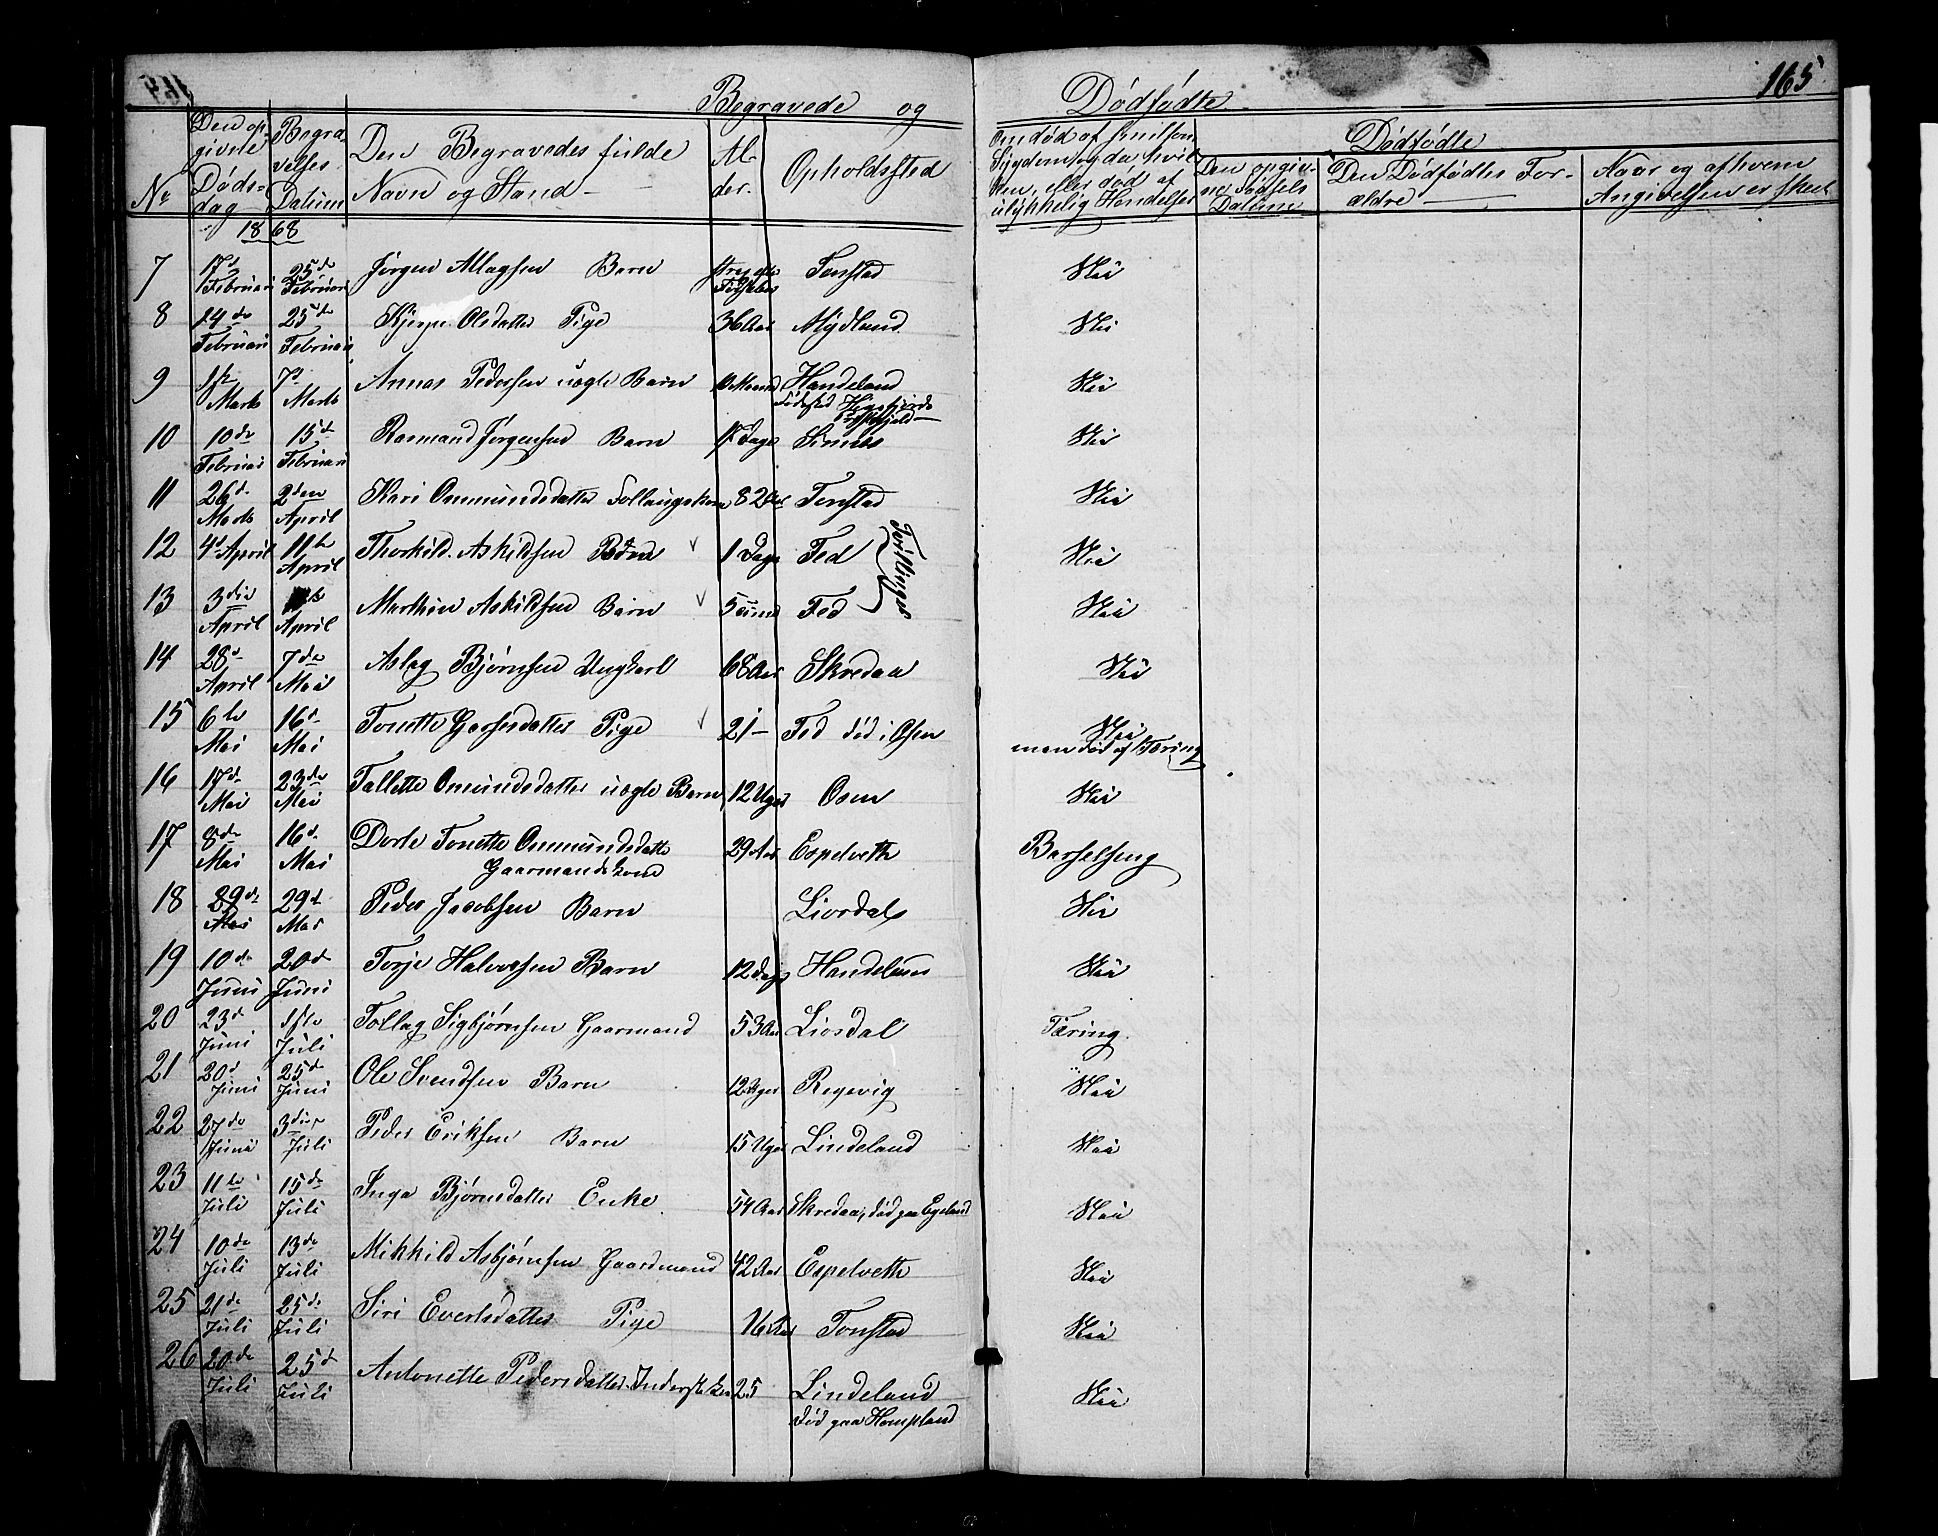 165
Begravede og Dødfødte
No
Den op-
givne
Døds-
dag
Begra-
velses
Datum
Den Begravedes fulde
Navn og Stand
Al-
der.
Opholdssted
Om død af smitsom
Sygdom og da hvil-
ken, eller død af
ulykkelig Hændelse
Dødfødte
Den opgiv-
ne Fødsels
Datum
Den Dødfødtes For-
ældre
Naar og af hvem
Angivelsen er skeet
1868
7 17d Februari 25de Februari Jørgen Allagsen Barn strax efter Fødselen Tonstad Nei
8 14de Februari 25de Februari Olsdatter Pige 36 Aar Mydland Nei
9 1ste Marts 7d Marts Annas Pedersen uægte Barn Handeland Nei
Fødested
10 10de Februar 15d Februari Rasmand Jørgensen Barn Dage Sinnes Nei
11 26d Marts 2den April Kari Ommundsdatter 82 Aar Tonstad Nei
12 4d April 11te April Thorkild Askildsen Børn 1 Dage Fed Nei
Tvillinger
13 3die April April Marthin Askildsen Barn 5 Fed Nei
14 28d April 7de Mai Aslag Bjørnsen Ungkarl 68 Aar Skredaa Nei
15 6te Mai 16d Mai Tonette Pige 21 - Fed død i Osen Nei
men død af Tæring
16 17d Mai 23de Mai Tallette Omundsdatter uægte Barn 12 Uger Osen Nei
17 8de Mai 16d Mai Dorte Tonette Ommundsdatter 29 Aar Espelveth Barselseng
Gaarmandskone
18 29de Mai 29d Mai Peder Jacobsen Barn Liosdal Nei
19 10de Juni 20d Juni Torje Halvorsen Barn 12 Dage Handeland Nei
20 23d Juni 1ste Juli Tollag Sigbjørnsen Gaarmand 53 Aar Liosdal Tæring.
21 20d Juni 25de Juni Ole Svendsen Barn 12 Uger Regevig Nei
22 27de Juni 3die Juli Peder Eriksen Barn 15 Uger Lindeland Nei
23 11te Juli 15de Juli Inga Bjørnsdatter Enke 54 Aar Skredaa, død paa Egeland Nei
24 10de Juli 13de Juli Mikkild Asbjørnsen Gaardmand 42 Aar Espelveth Nei
25 21de Juli 25de Juli Siri Evertsdatter Pige 16 Aar Tonstad Nei
26 20de Juli 25d Juli Antonette Pedersdatter Inderstekone 25 Lindeland Nei
død paa Hompland